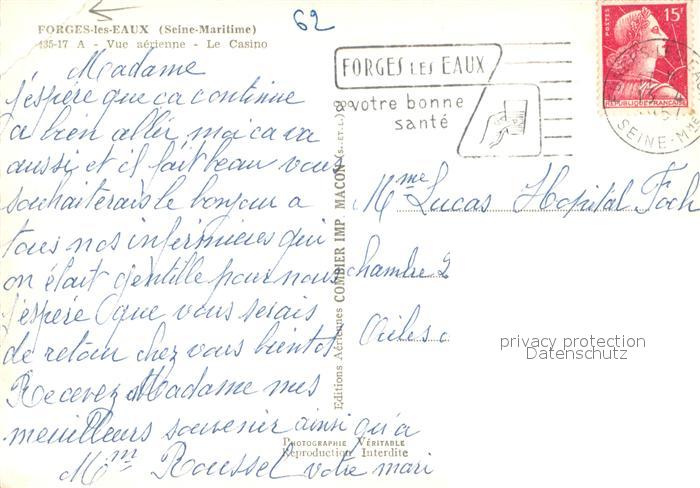 FORGES-les-EAUX (Seine-Maritime)
435-17 A - Vue aérienne - Le Casino
62
Madame
j'éspére que ca continue
a bien aller moi ca va
aussi et il fait beau vous
souhaiterais le bonjour a
tous nos infermieres qui
on était gentille pour nous
j'espére que vous serais
de retour chez vous bientot
Recevez Madame mes
meuilleurs souvenir ainsi qu'a
Mme Roussel votre mari
Editions Aériennes COMBIER IMP. MACON (S.-ET-L.)
PHOTOGRAPHIE VÉRITABLE
Reproduction Interdite
FORGES LES EAUX
a votre bonne
santé
POSTES
15F
REPUBLIQUE FRANÇAISE
SEINE-Mme
Mme Lucas Hopital Foch
chambre 2
privacy protection
Datenschutz